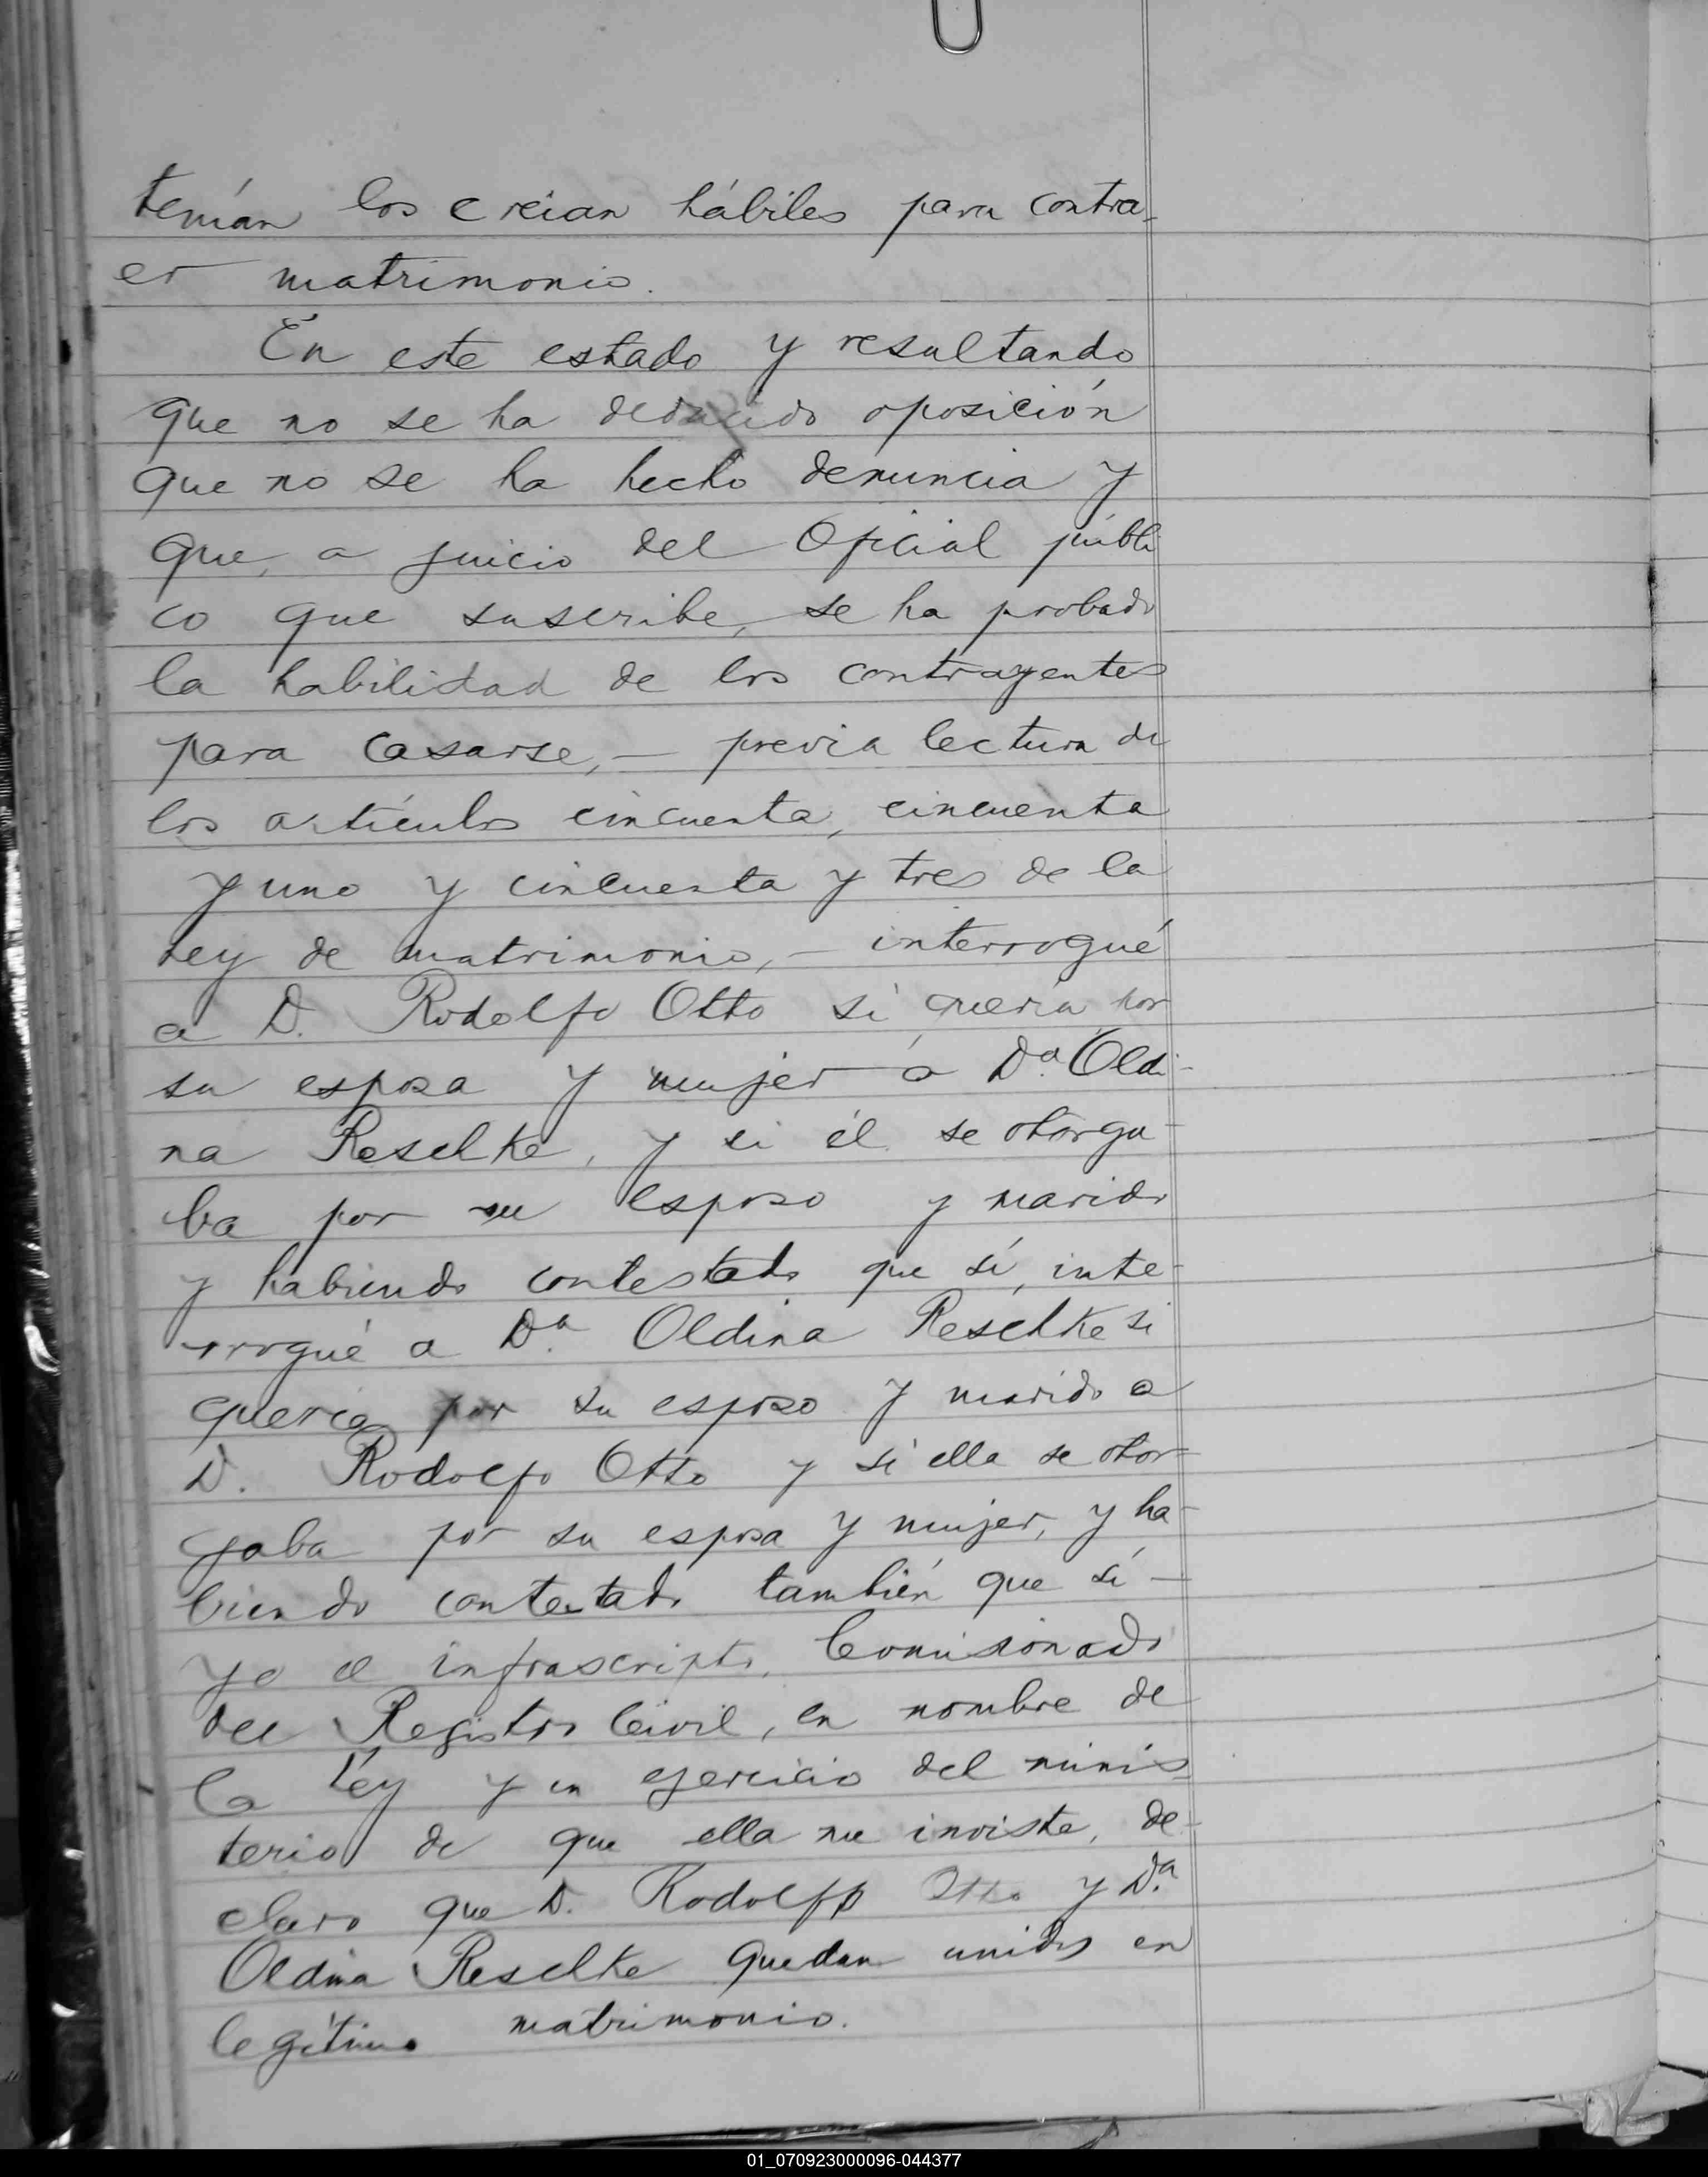 temían los creian hábiles para contra-
er matrimonio.
En este estado y resultando
que no se ha deducido oposición
que no se ha hecho denuncia y
que, a juicio del Oficial públi
co que suscribe, se ha probado
la habilidad de los contrayentes
para casarse, — previa lectura de
los artículos cincuenta, cincuenta
y uno y cincuenta y tres de la
Ley de matrimonio, — interrogué
a D. Rodolfo Otto si queria por
su esposa y mujer á Dª. Oldi-
na Reschke, y si él se otorga-
ba por su esposo y marido
y habiendo contestado que sí, inte-
rrogué a Dª. Oldina Reschke si
queria por su esposo y marido a
D. Rodolfo Otto y si ella se otor-
gaba por su esposa y mujer, y ha-
biendo contestado también que sí —
yo el infrascripto, Comisionado
del Registro Civil, en nombre de
la Ley y en ejercicio del minis-
terio de que ella me inviste, de-
claro que D. Rodolfo Otto y Dª.
Oldina Reschke quedan unidos en
legítimo matrimonio.
01_070923000096-044377